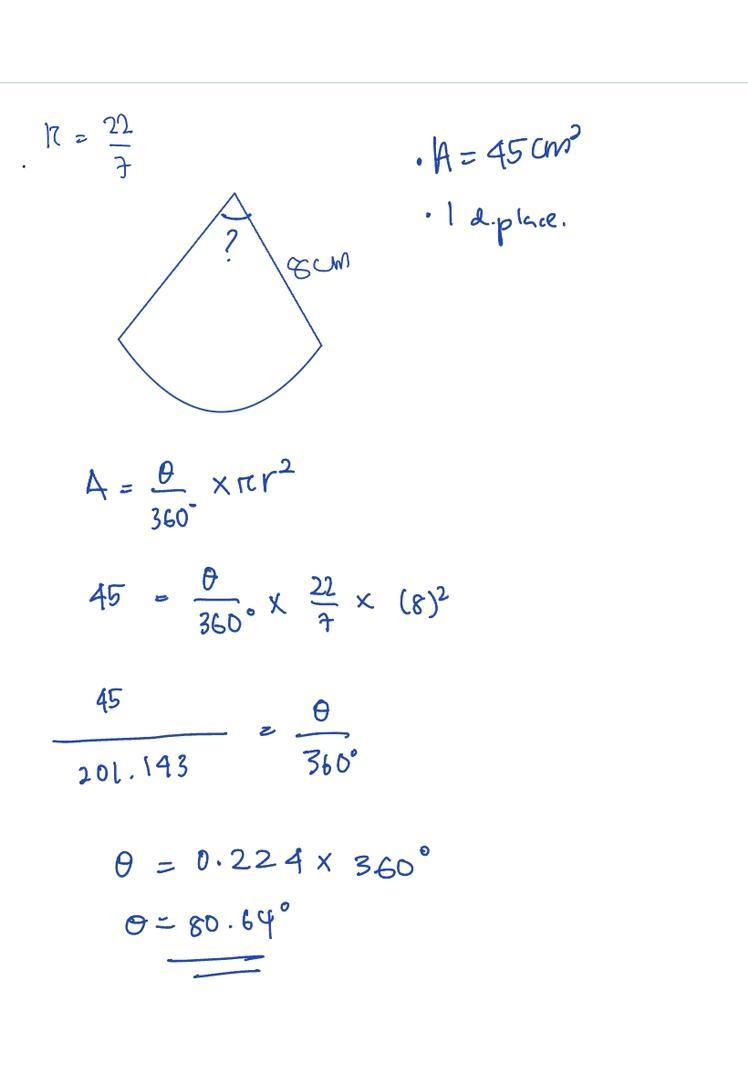 π = 22/7
• A = 45 cm²
• 1 d.place.
?
8cm
A = θ/360° × πr²
45 = θ/360° × 22/7 × (8)²
45/201.143 = θ/360°
θ = 0.224 × 360°
θ = 80.64°